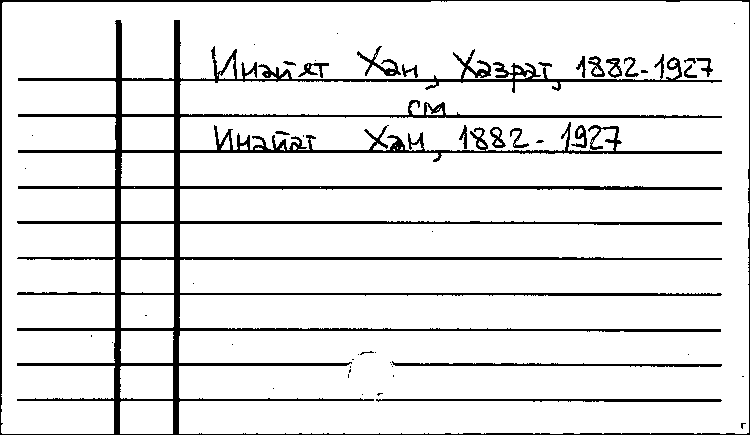 Инайят Хан, Хазрат, 1882-1927
см.
Инайат Хан, 1882-1927